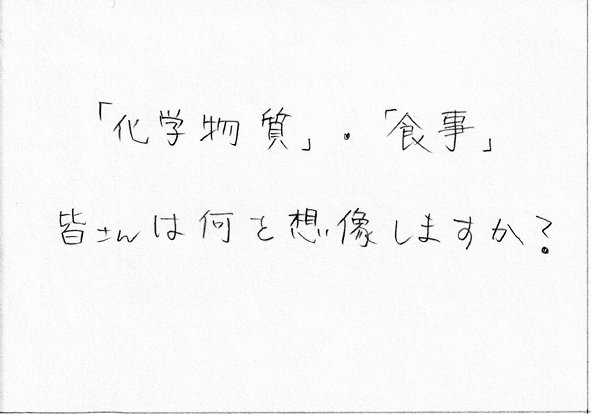 「化学物質」・「食事」
皆さんは何を想像しますか?